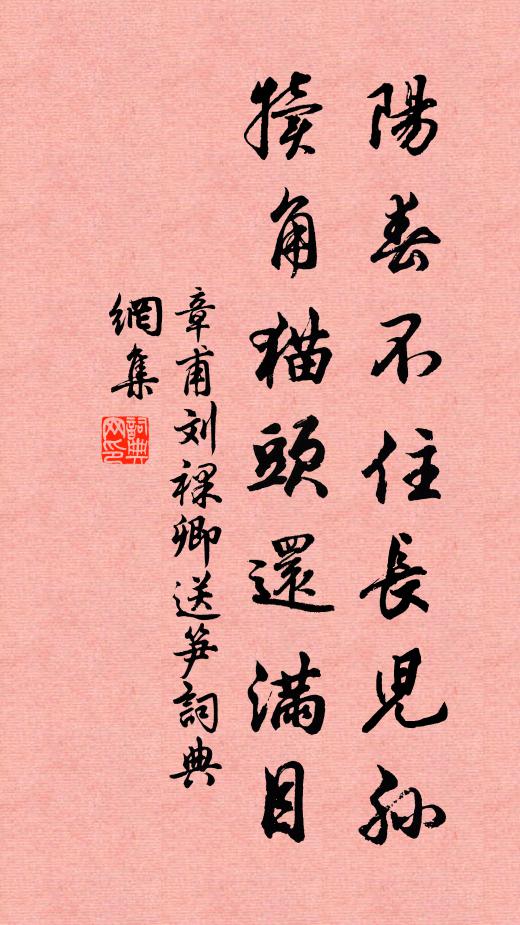 陽春不住長兒孫
犢角猫頭還滿目
章甫刘裸卿送笋詞典
網集
詞典網印